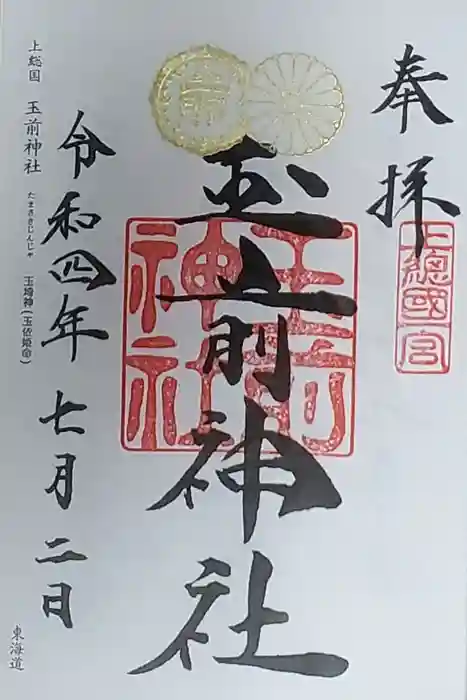 奉拝
上總國一宮
玉前
玉前神社
玉前神社
令和四年 七月二日
上総国 玉前神社 たまさきじんじゃ 玉埼神(玉依姫命)
東海道